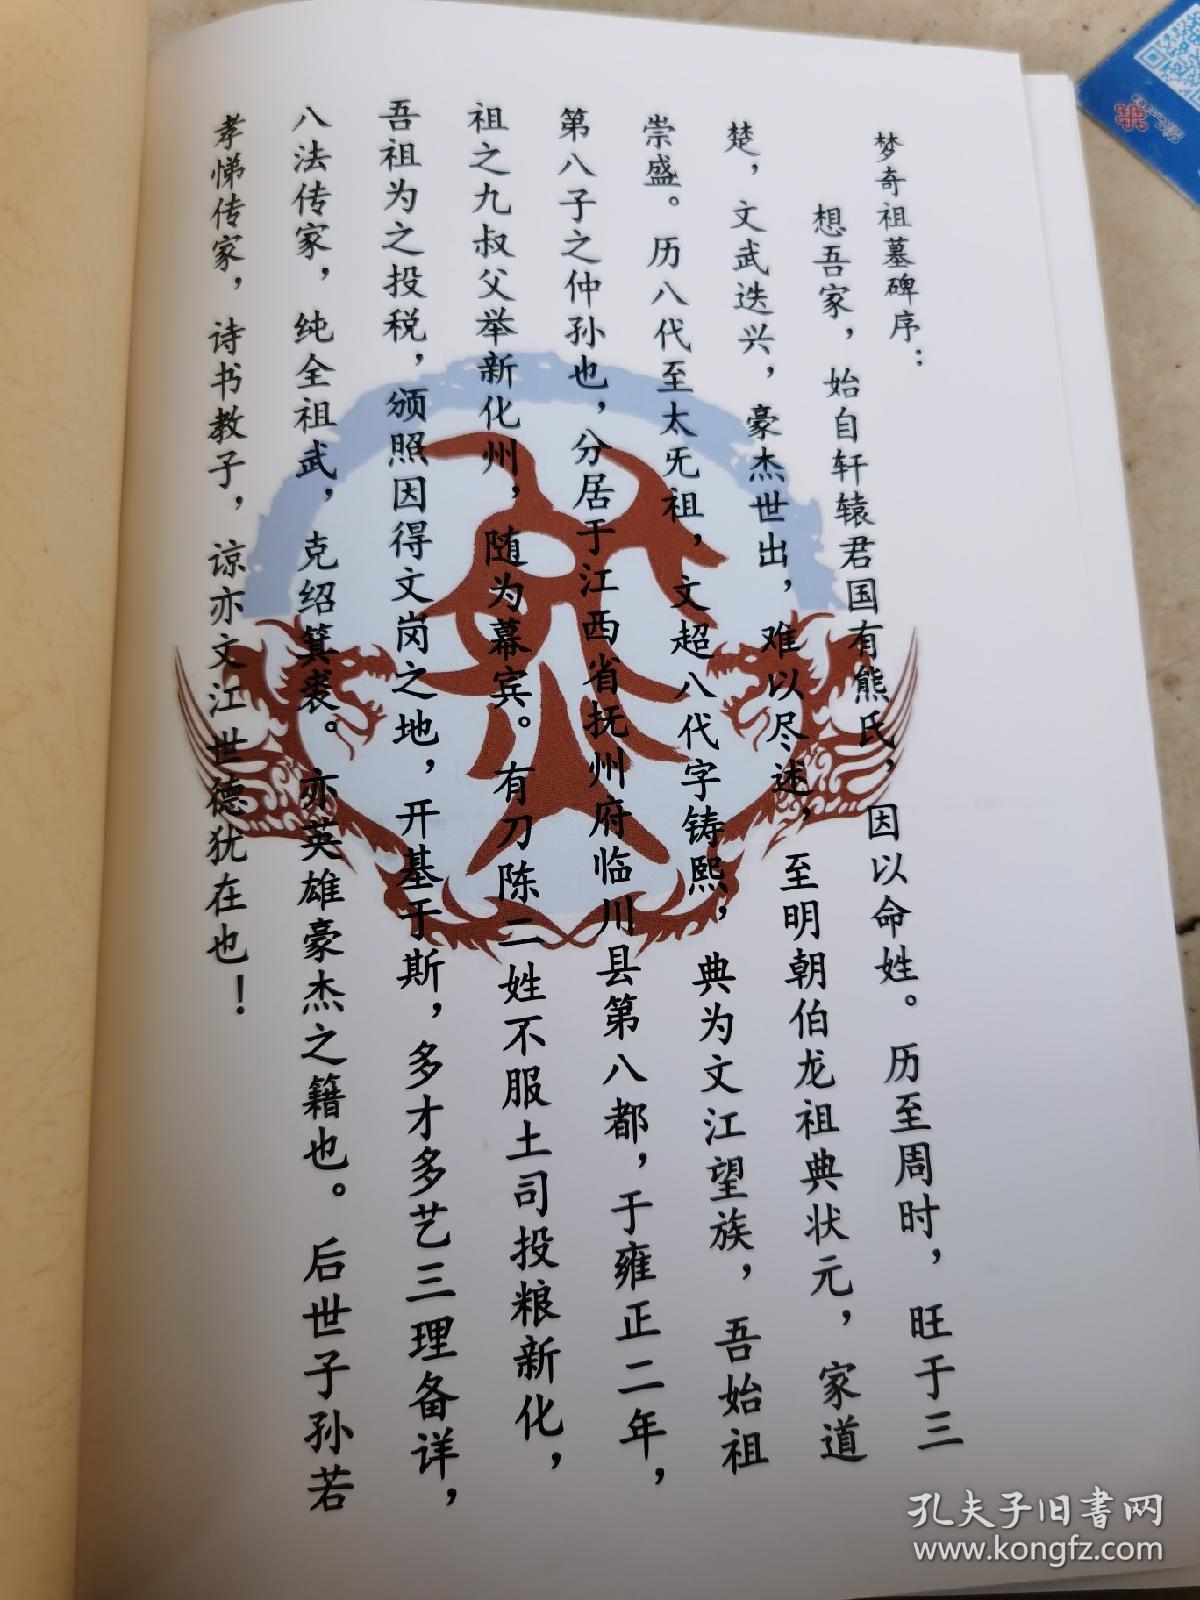 梦奇祖墓碑序：
想吾家，始自轩辕君国有熊氏，因以命姓。历至周时，旺于三
楚，文武迭兴，豪杰世出，难以尽述，至明朝伯龙祖典状元，家道
崇盛。历八代至太旡祖，文超八代字铸熙，典为文江望族，吾始祖
第八子之仲孙也，分居于江西省抚州府临川县第八都，于雍正二年，
祖之九叔父举新化州，随为幕宾。有刀陈二姓不服土司投粮新化，
吾祖为之投税，颁照因得文岗之地，开基于斯，多才多艺三理备详，
八法传家，纯全祖武，克绍箕裘。亦英雄豪杰之籍也。后世子孙若
孝悌传家，诗书教子，谅亦文江世德犹在也！
孔夫子旧书网
www.kongfz.com